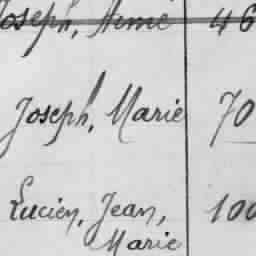 Joseph, Aimé 46
Joseph, Marie 70
Lucien, Jean, 100
Marie